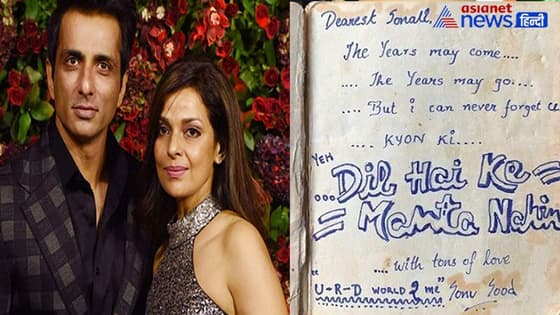 asianet
news हिन्दी
Dearest Sonali,
The Years may come....
.... The Years may go....
.... But i can never forget
.... KYON KI....
YEH
...Dil Hai Ke
Manta Nahin
... with tons of love
"U-R-D WORLD 2 me" Sonu Sood